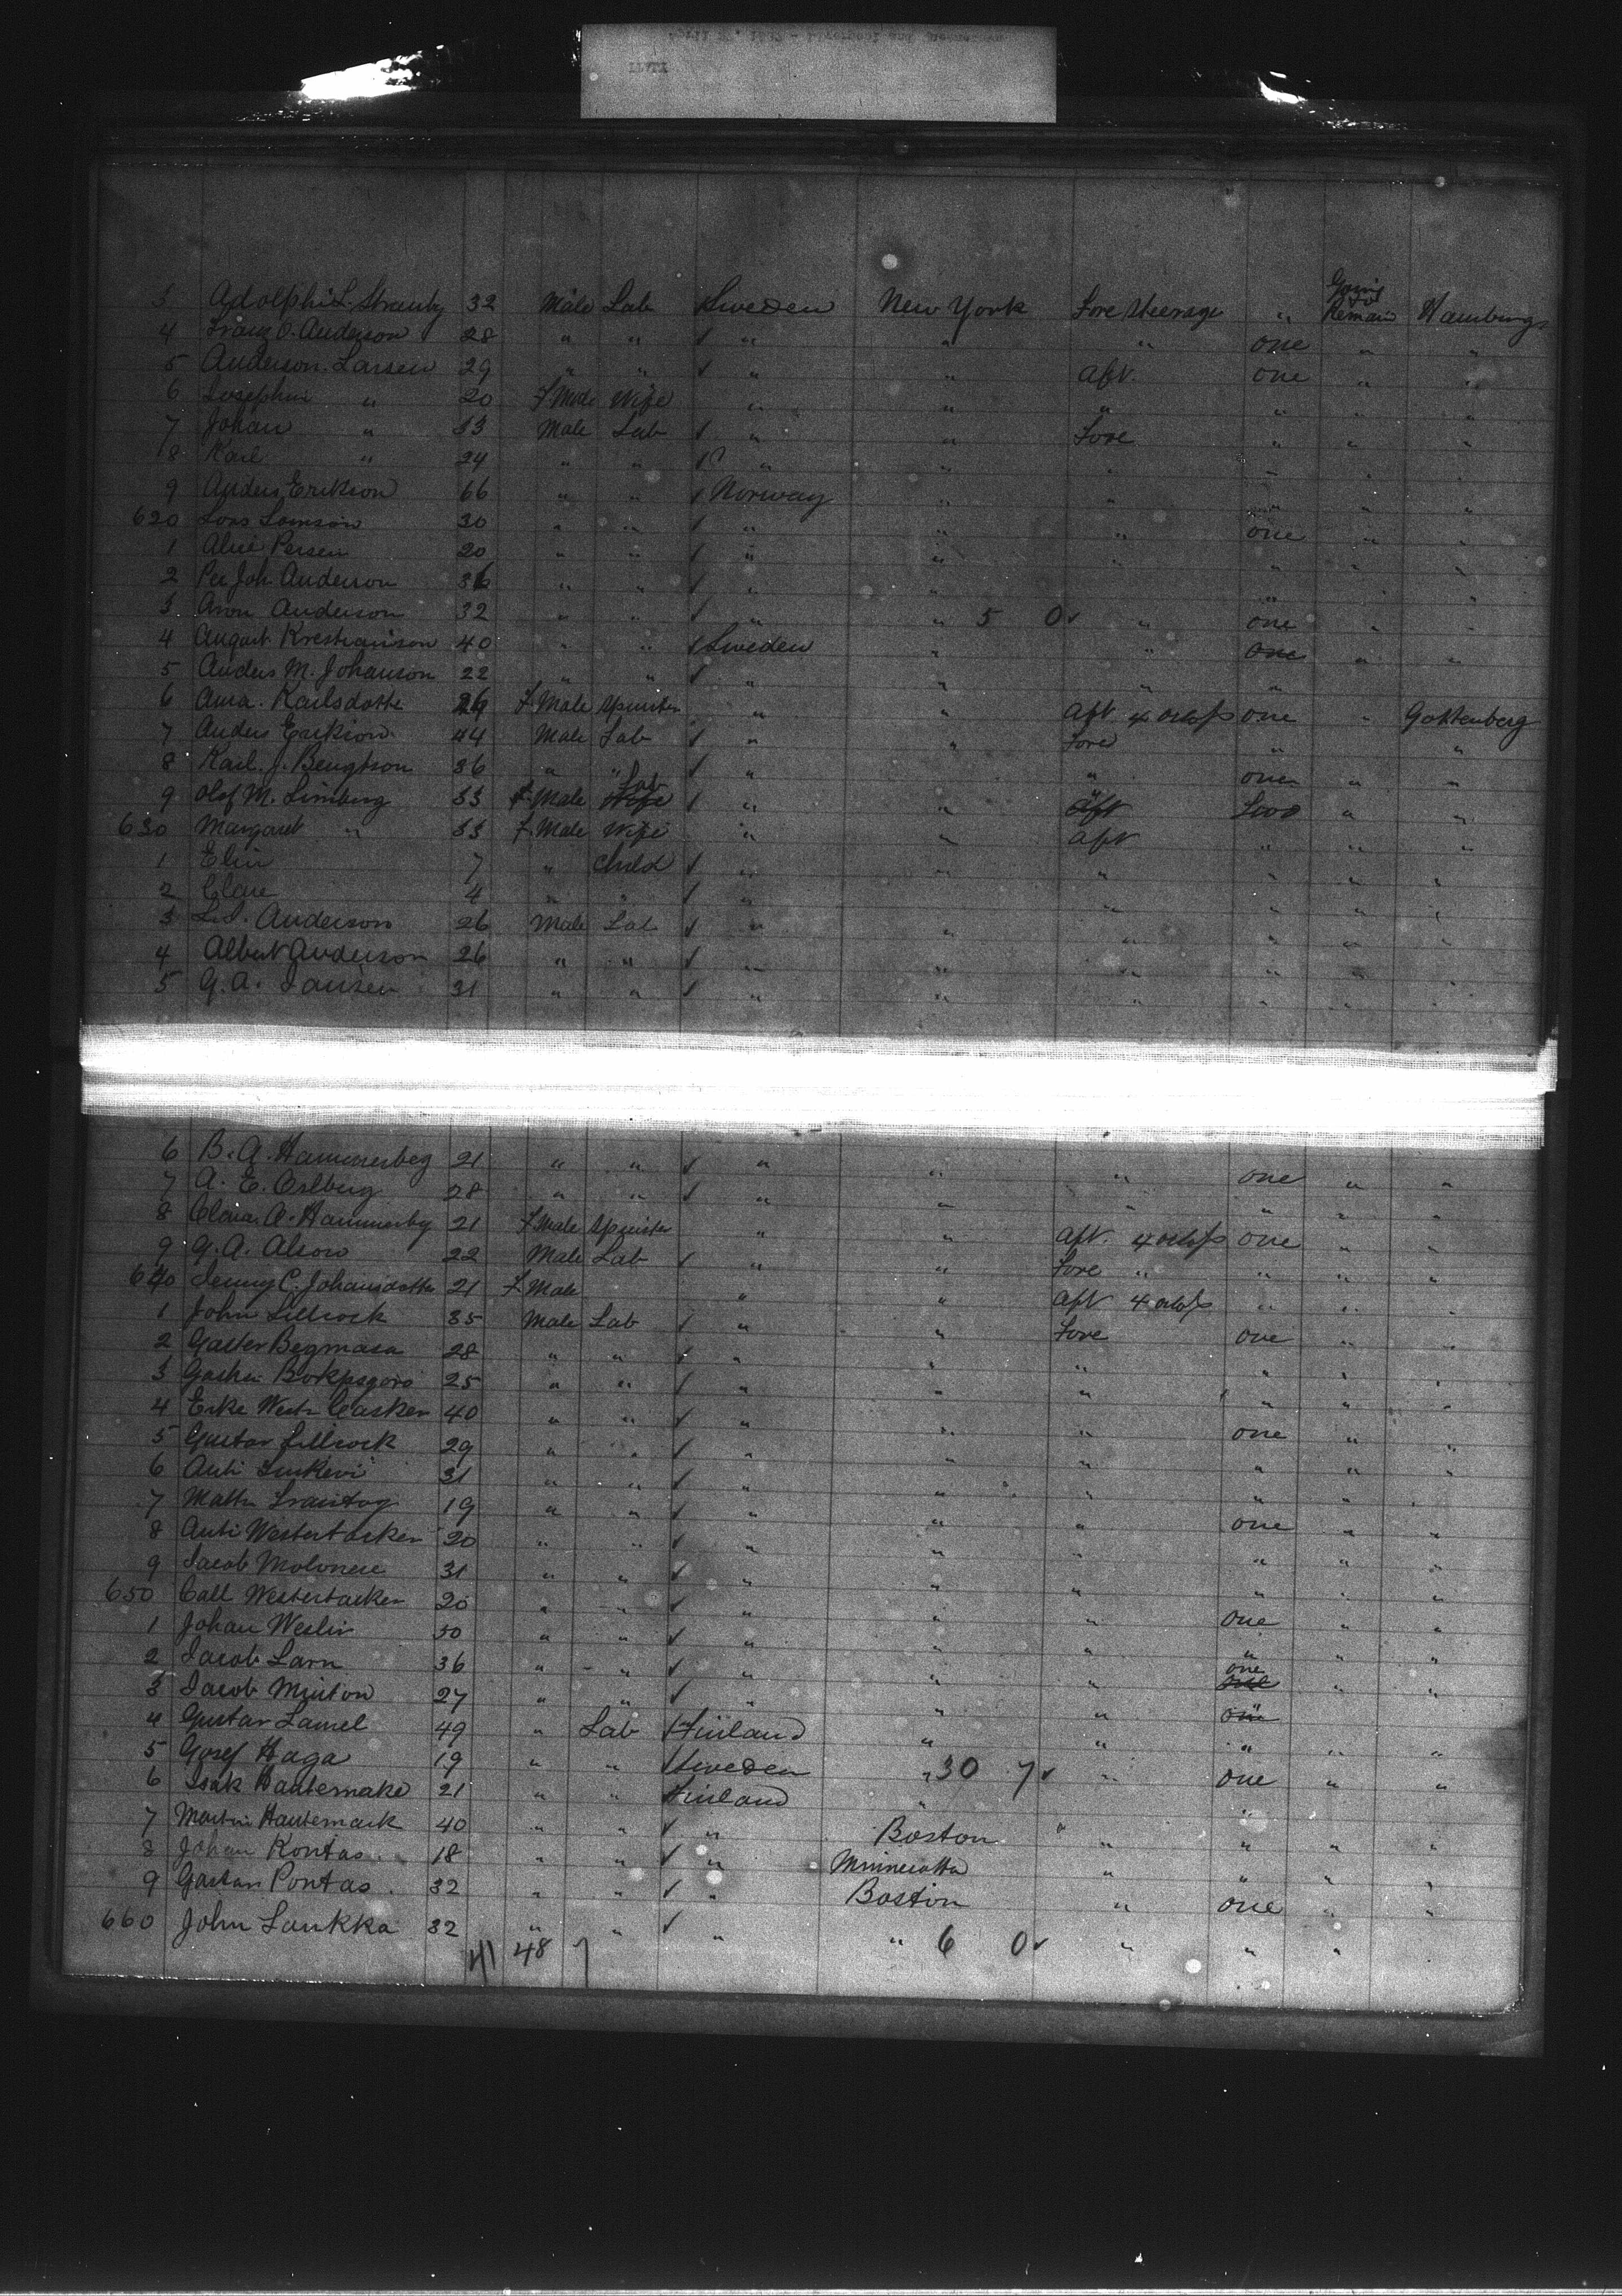 Going
3 Adolphi L. Stranby 32 Male Lab Sweden New York Fore Steerage " to Remain Hamburg
4 Franz O. Anderson 28 " " " " " one " "
5 Anderson Larsen 29 " " " " Aft. one " "
6 Josephin " 20 F Male Wife " " " " "
7 Johan " 33 Male Lab " " Fore " " "
8 Karl " 24 " " " " " " " "
9 Anders Erikson 66 " " Norway " " " " "
620 Lars 30 " " " " " one " "
1 Persen 20 " " " " " " " "
2 Per Joh Anderson 36 " " " " " " " "
3 Aron Anderson 32 " " " " 5 0 " one " "
4 August Krestianson 40 " " Sweden " " one " "
5 Anders M. Johanson 22 " " " " " "
6 Anna Karlsdotte 26 F Male Spinster " Aft 4 one " Gottenberg
7 Anders Erikson 44 Male Lab " " Fore " "
8 Karl. J. Bengtson 36 " " " " one " "
9 Olof M. Limberg 33 F Male Wife Lab " " Aft " Two " "
630 Margaret " 33 F. Male Wife " " Aft " " "
1 Elin 7 " Child " " " " "
2 Clare 4 " " " " " " "
3 Anderson 26 Male Lab " " " " " "
4 Albert Anderson 26 " " " " " " " "
5 G. A. Jansen 31 " " " " " " " "
6 B. A. Hammerbeg 21 " " " " " one " "
7 A. E. Oslberg 28 " " " " " " " "
8 Clara. A. Hammerby 21 F Male Spinster " " Aft. 4 one " "
9 G. A. Alson 22 Male Lab " " Fore " " " "
640 Jenny C. Johansdotte 21 F Male " " Aft 4 " " "
1 John Lillcock 35 Male Lab " " Fore one " "
2 Begmasa 28 " " " " " " " "
3 25 " " " " " " " "
4 40 " " " " " one " "
5 Gustav Lillcock 29 " " " " " " " "
6 Anti 31 " " " " " " "
7 19 " " " " " one " "
8 Anti Westertacker 20 " " " " " " " "
9 Jacob Molonese 31 " " " " " " " "
650 Call Westertacker 20 " " " " " one " "
1 Johan Weslin 30 " " " " " " " "
2 Jacob Larn 36 " " " " " one " "
3 Jacob Minton 27 " " " " " one
4 Gustav Lamel 49 " Lab Finland " " " " "
5 Josef Haga 19 " " Sweden " 30 7 " one " "
6 Isak Hautemake 21 " " Finland " "
7 Martin Hautemack 40 " " " Boston " " " "
8 Johan Kontas 18 " " " Minnesotta " " " "
9 Gastan Pontas 32 " " " Boston " one " "
660 John Laukka 32 " " " " 6 0 " " "
41 48 7